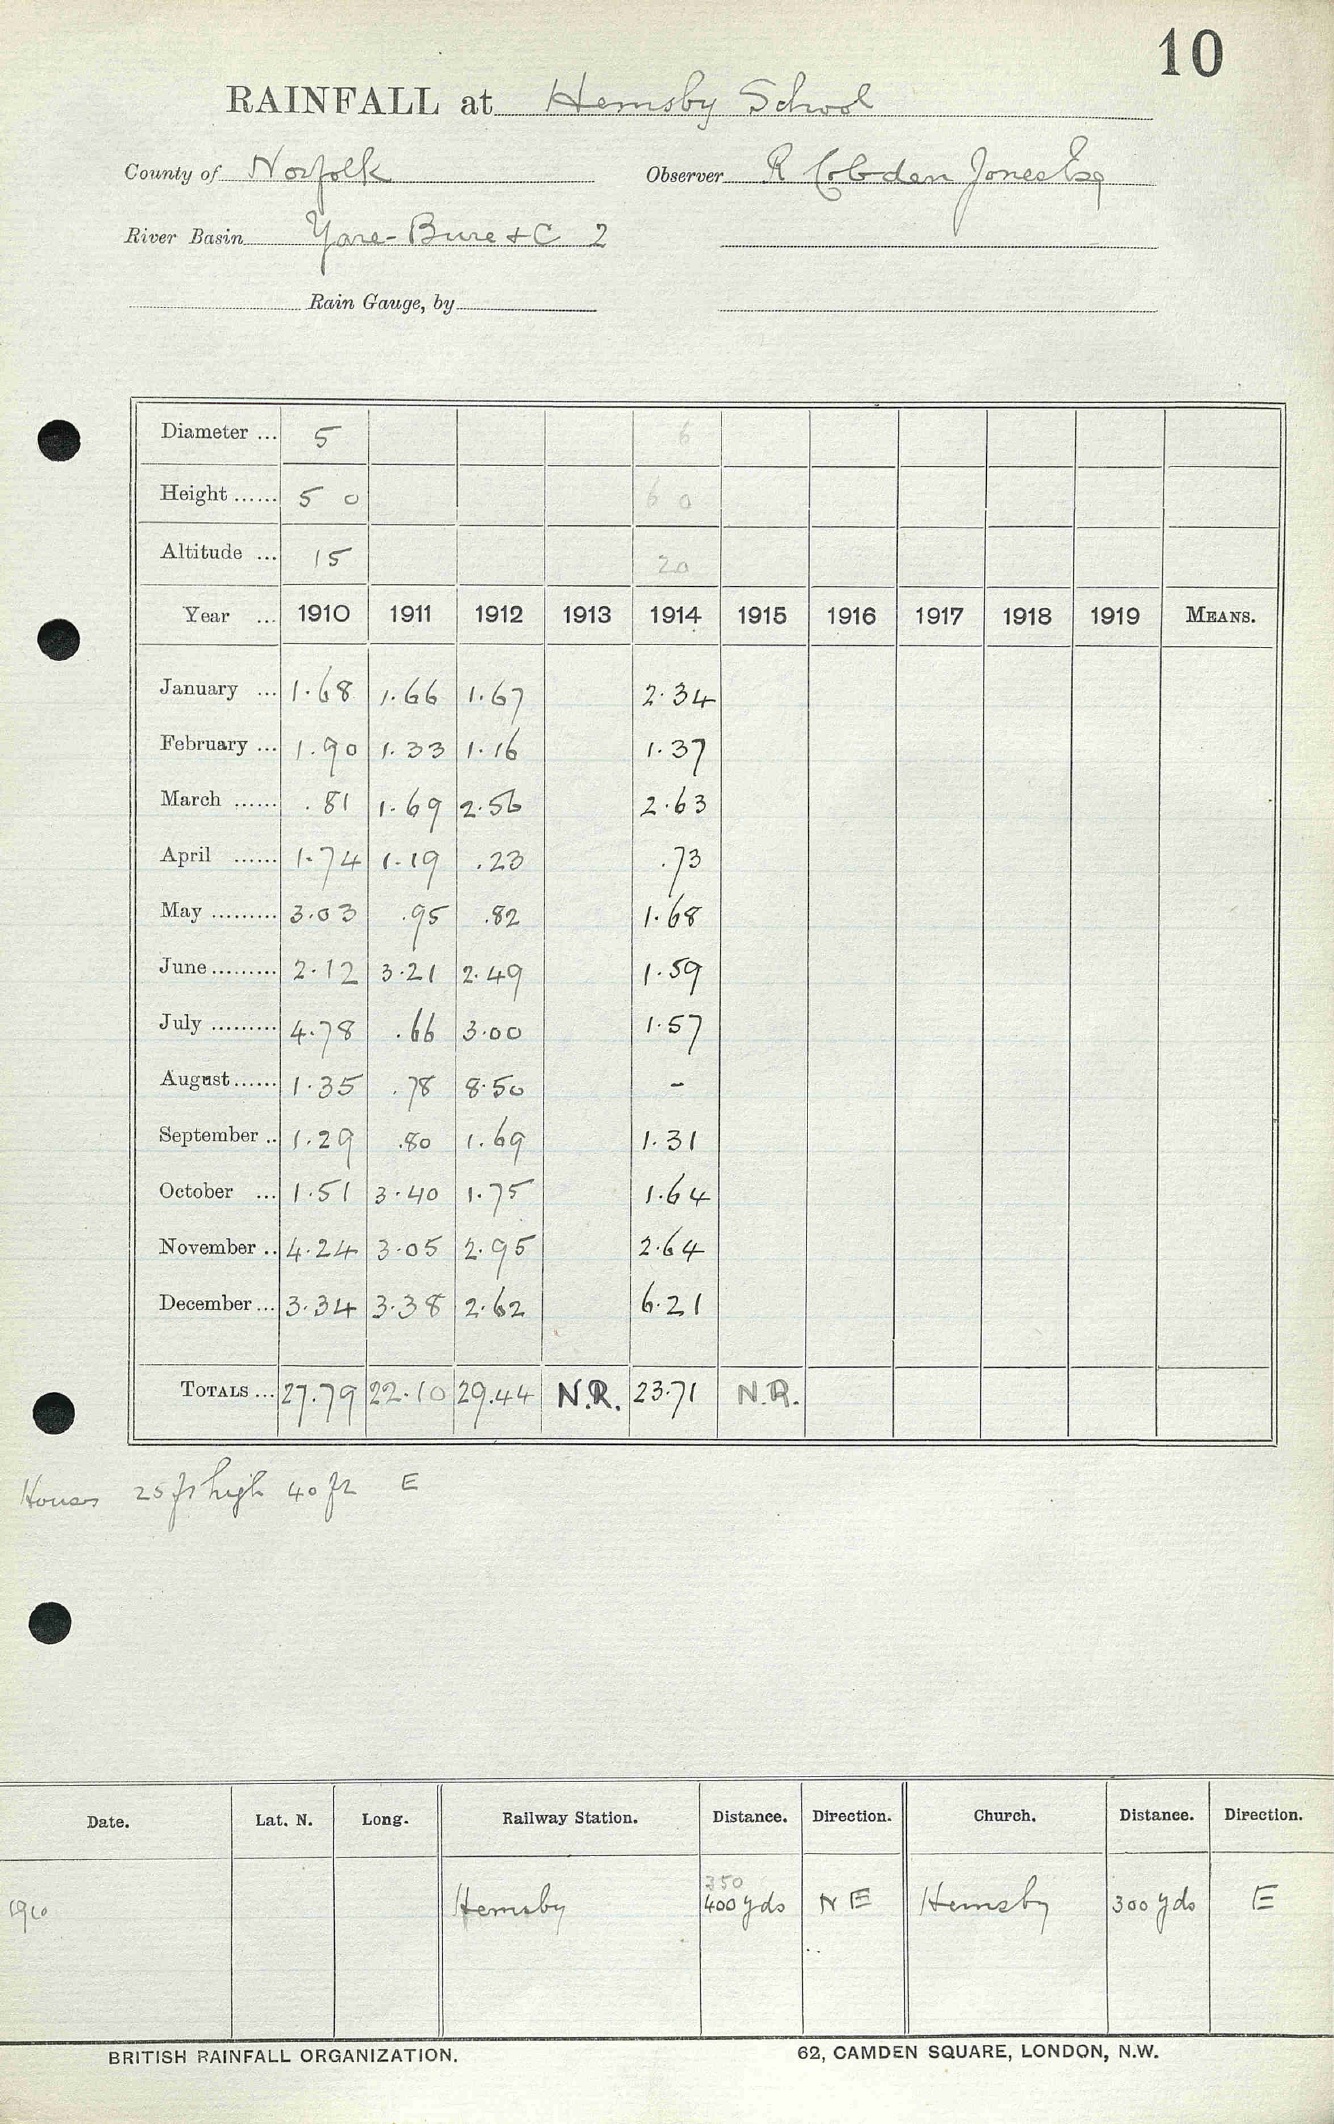 10
RAINFALL at Hemsby School
County of Norfolk Observer R Cobden Jones Esq
River Basin Yare-Bure &C 2
Rain Gauge, by
Diameter ... 5 6
Height ...... 5 0 6 0
Altitude ... 15 20
Year ... 1910 1911 1912 1913 1914 1915 1916 1917 1918 1919 MEANS.
January ... 1.68 1.66 1.67 2.34
February ... 1.90 1.33 1.16 1.37
March ...... .81 1.69 2.56 2.63
April ...... 1.74 1.19 .23 .73
May ......... 3.03 .95 .82 1.68
June ......... 2.12 3.21 2.49 1.59
July ......... 4.78 .66 3.00 1.57
August ...... 1.35 .78 8.50 -
September .. 1.29 .80 1.69 1.31
October ... 1.51 3.40 1.75 1.64
November .. 4.24 3.05 2.95 2.64
December ... 3.34 3.38 2.62 6.21
TOTALS ... 27.79 22.10 29.44 N.R. 23.71 N.R.
Houses 25 ft high 40 ft E
Date. Lat. N. Long. Railway Station. Distance. Direction. Church. Distance. Direction.
350
1910 Hemsby 400 yds N E Hemsby 300 yds E
BRITISH RAINFALL ORGANIZATION. 62, CAMDEN SQUARE, LONDON, N.W.